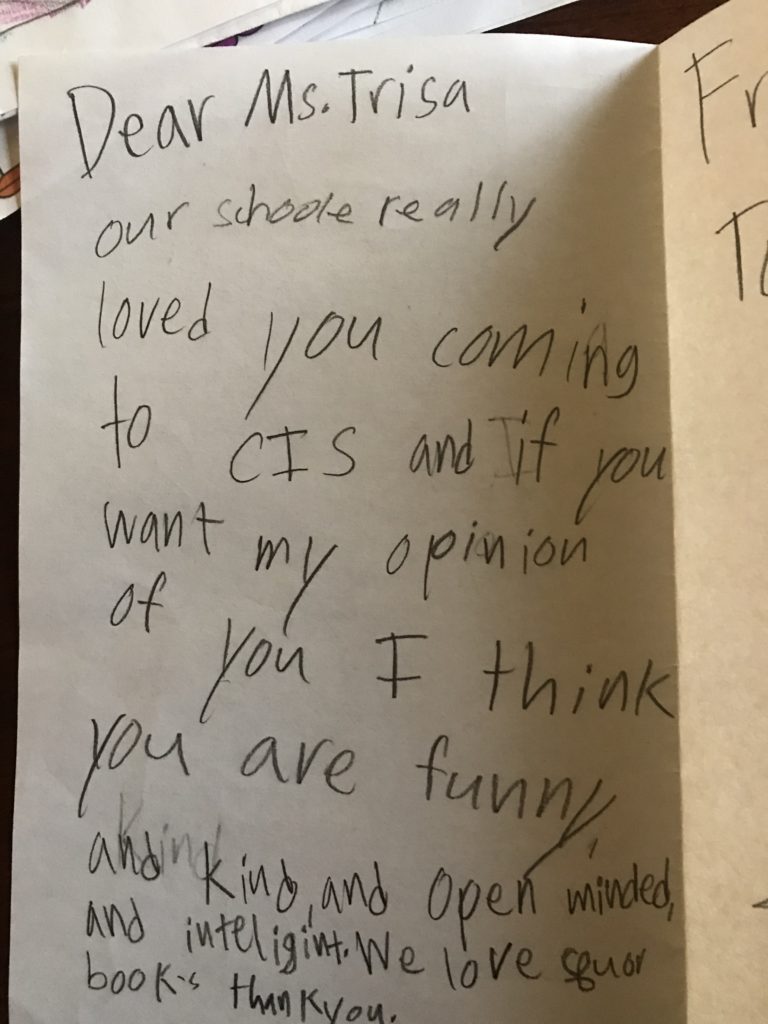 Dear Ms. Trisa
our schoole really
loved you coming
to CIS and if you
want my opinion
of you I think
you are funny,
and kind, and open minded,
and inteligint. We love
book-s thankyou.
Fr
To